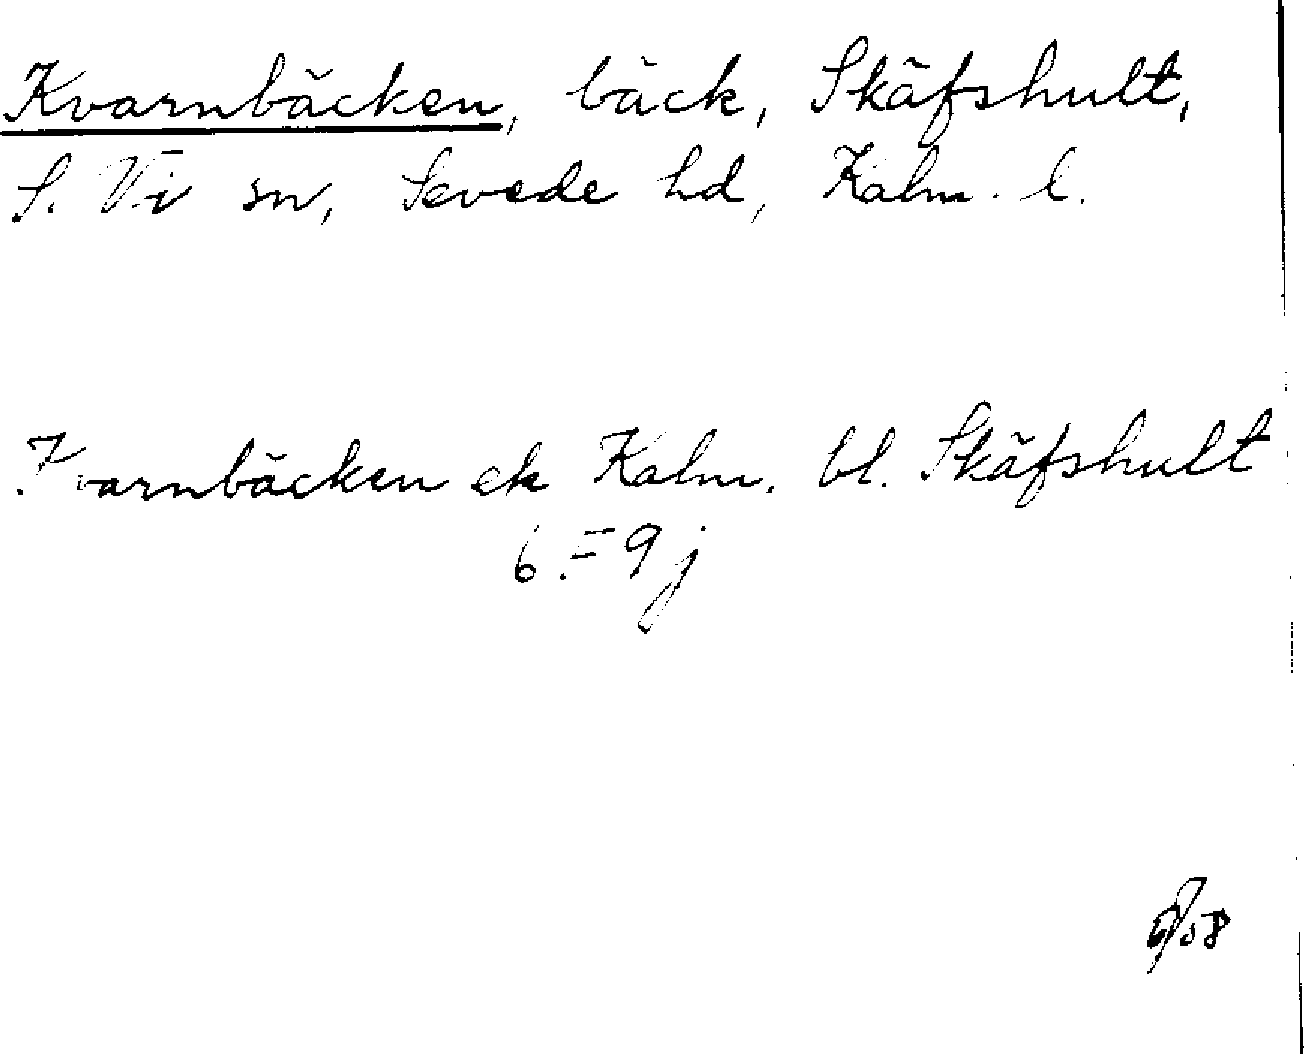 Kvarnbäcken, bäck, Skäfshult,
S. Vi sn, Sevede hd, Kalm. l.
Kvarnbäcken ek Kalm. bl. Skäfshult
6 F 9 j